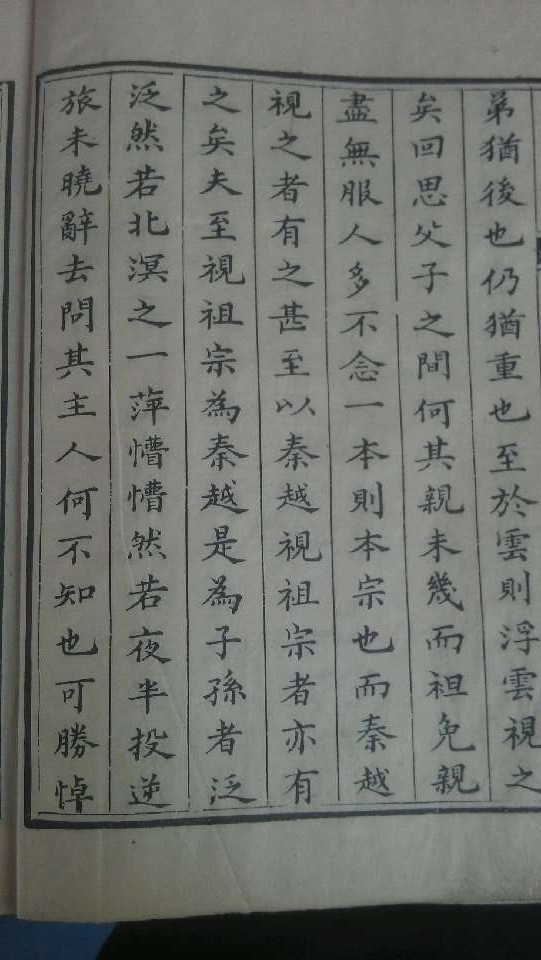 弟猶後也仍猶重也至於雲則浮雲視之
矣回思父子之間何其親未幾而袒免親
盡無服人多不念一本則本宗也而秦越
視之者有之甚至以秦越視祖宗者亦有
之矣夫至視祖宗為秦越是為子孫者泛
泛然若北溟之一萍懵懵然若夜半投逆
旅未曉辭去問其主人何不知也可勝悼